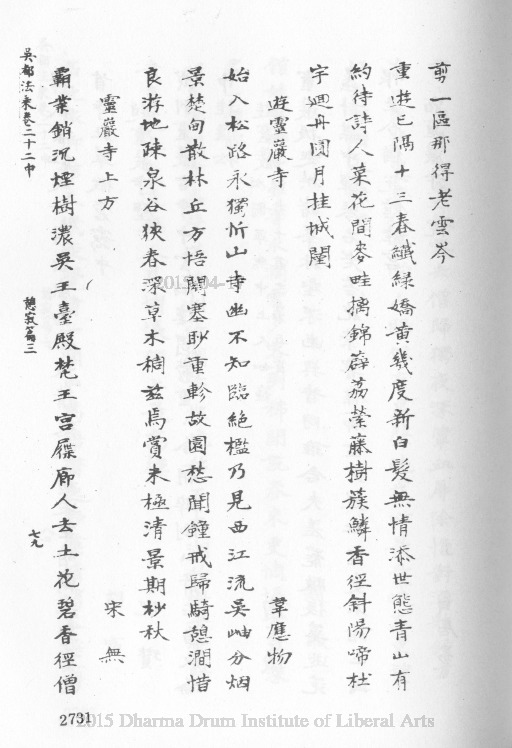 剪一區那得老雲岑
重遊已隔十三春纖綠嬌黃幾度新白髮無情添世態青山有
約待詩人菜花間麥畦摛錦薜荔縈藤樹簇鱗香徑斜陽啼杜
宇迴舟圓月挂城闉
遊靈巖寺 韋應物
始入松路永獨忻山寺幽不知臨絕檻乃見西江流吳岫分烟
景楚甸散林丘方悟關塞眇重軫故園愁聞鐘戒歸騎憩澗惜
良游地疎泉谷狹春深草木稠茲焉賞未極清景期杪秋
靈巖寺上方 宋無
霸業銷沉煙樹濃吳王臺殿梵王宮屧廊人去土花碧香徑僧
吳都法乘卷二十二中 憩寂篇三 七九
2731
2015-04-
2015 Dharma Drum Institute of Liberal Arts